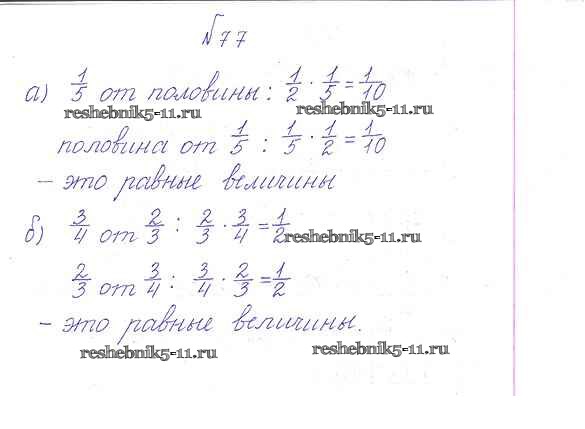 №77
а) 1/5 от половины: 1/2 · 1/5 = 1/10
reshebnik5-11.ru reshebnik5-11.ru
половина от 1/5 : 1/5 · 1/2 = 1/10
– это равные величины
б) 3/4 от 2/3 : 2/3 · 3/4 = 1/2
reshebnik5-11.ru
2/3 от 3/4 : 3/4 · 2/3 = 1/2
– это равные величины.
reshebnik5-11.ru reshebnik5-11.ru